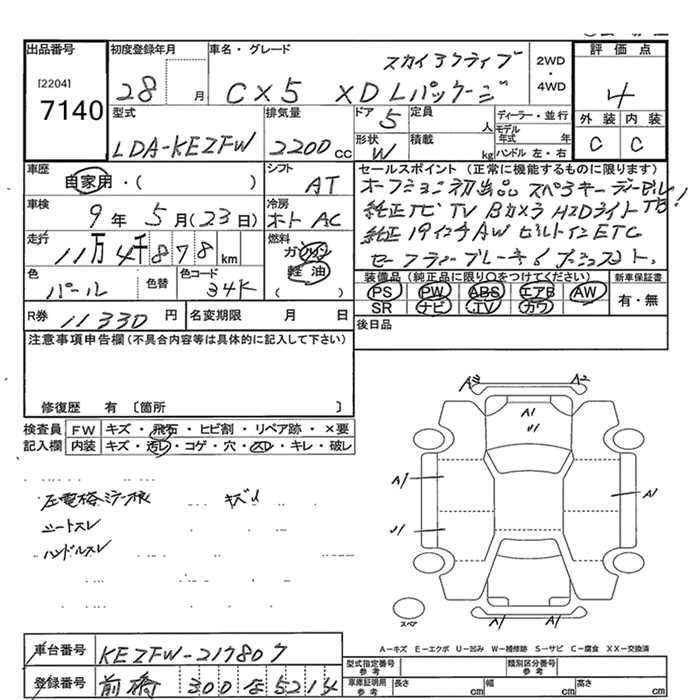 出品番号
[2204]
7140
初度登録年月
28 月
車名・グレード
スカイアクティブ
CX5 XD Lパッケージ
2WD
・
4WD
評価点
4
外装 内装
C C
型式
LDA-KE2FW
排気量
2200 cc
ドア 5
形状 W
定員 人
積載 kg
ディーラー・並行
モデル年式 年
ハンドル 左・右
車歴
自家用・( )
シフト
AT
車検
9年5月(23日)
冷房
オート AC
走行
11万4千878km
燃料
ガソリン
軽油
( )
色
パール
色替
色コード
34K
R券 11330円
名変期限 月 日
セールスポイント (正常に機能するものに限ります)
オープション
スペアキー
純正ナビ TV Bカメラ HIDライト
純正 19インチAW ビルトインETC
セーフティーブレーキ
装備品 (純正品に限り○をつけてください)
PS PW ABS エアB AW
SR ナビ TV カワ
新車保証書
有・無
後日品
注意事項申告欄(不具合内容等は具体的に記入して下さい)
修復歴 有 〔箇所 〕
検査員記入欄
FW キズ・飛石・ヒビ割・リペア跡・×要
内装 キズ・汚レ・コゲ・穴・スレ・キレ・破レ
キズU
シートスレ
ハンドルスレ
A2 A2
A1
U1
A1
A1
U1
A1 A1
スペア
A-キズ E-エクボ U-凹み W-補修跡 S-サビ C-腐食 XX-交換済
車台番号 KE2FW-217807
登録番号 前橋 300 5214
型式指定番号 参考
類別区分番号 参考
車庫証明用 参考
長さ cm 幅 cm 高さ cm